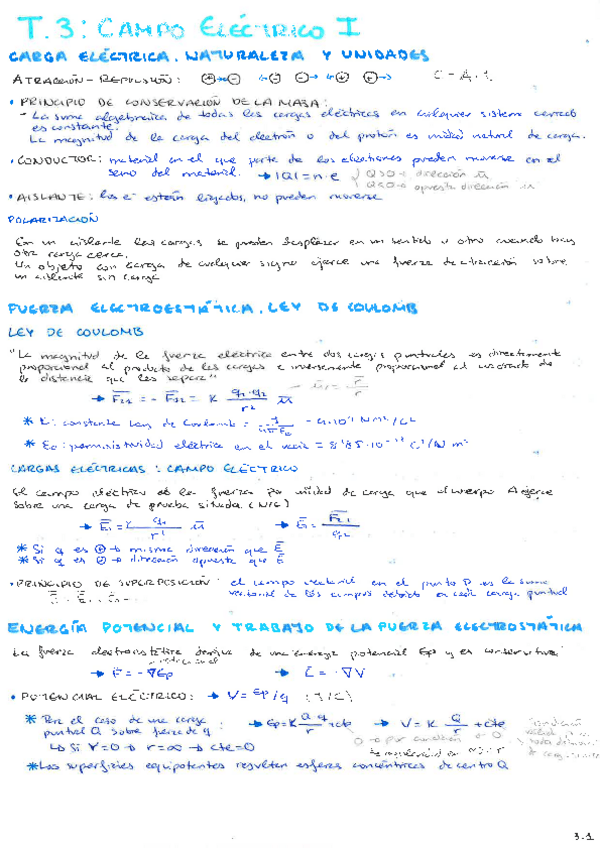 T.3: CAMPO ELÉCTRICO I
CARGA ELÉCTRICA. NATURALEZA Y UNIDADES
ATRACCIÓN - REPULSIÓN: C = A · s
• PRINCIPIO DE CONSERVACIÓN DE LA MASA:
- La suma algebraica de todas las cargas eléctricas en cualquier sistema cerrado
es constante.
La magnitud de la carga del electrón o del protón es unidad natural de carga.
• CONDUCTOR: material en el que parte de los electrones pueden moverse en el
seno del material. → |Q| = n·e
• AISLANTE: los e⁻ están ligados, no pueden moverse
POLARIZACIÓN
En un aislante las cargas se pueden desplazar en un sentido u otro cuando hay
otra carga cerca.
Un objeto con carga de cualquier signo ejerce una fuerza de atracción sobre
un aislante sin carga
FUERZA ELECTROESTÁTICA. LEY DE COULOMB
LEY DE COULOMB
"La magnitud de la fuerza eléctrica entre dos cargas puntuales es directamente
proporcional al producto de las cargas e inversamente proporcional al cuadrado de
la distancia que las separa"
* K: constante Ley de Coulomb =
* E₀: permisividad eléctrica en el vacío = 8'85·10⁻¹² C²/N m²
CARGAS ELÉCTRICAS: CAMPO ELÉCTRICO
El campo eléctrico es la fuerza por unidad de carga que el cuerpo A ejerce
sobre una carga de prueba situada. (N/C)
* Si q es ⊕ → misma dirección que E
* Si q es ⊖ → dirección opuesta que E
• PRINCIPIO DE SUPERPOSICIÓN: el campo vectorial en el punto P es la suma
vectorial de los campos debidos en cada carga puntual
ENERGÍA POTENCIAL Y TRABAJO DE LA FUERZA ELECTROSTÁTICA
La fuerza electrostática deriva de una energía potencial Ep y es conservativa
→ F = -∇Ep → E = -∇V
• POTENCIAL ELÉCTRICO: → V = Ep/q (J/C)
* Para el caso de una carga → Ep = K Qq/r + cte → V = K Q/r + cte
puntual Q sobre fuerza de q
↳ Si V=0 → r=∞ → cte=0
* Las superficies equipotentes resultan esferas concéntricas de centro Q
3.1